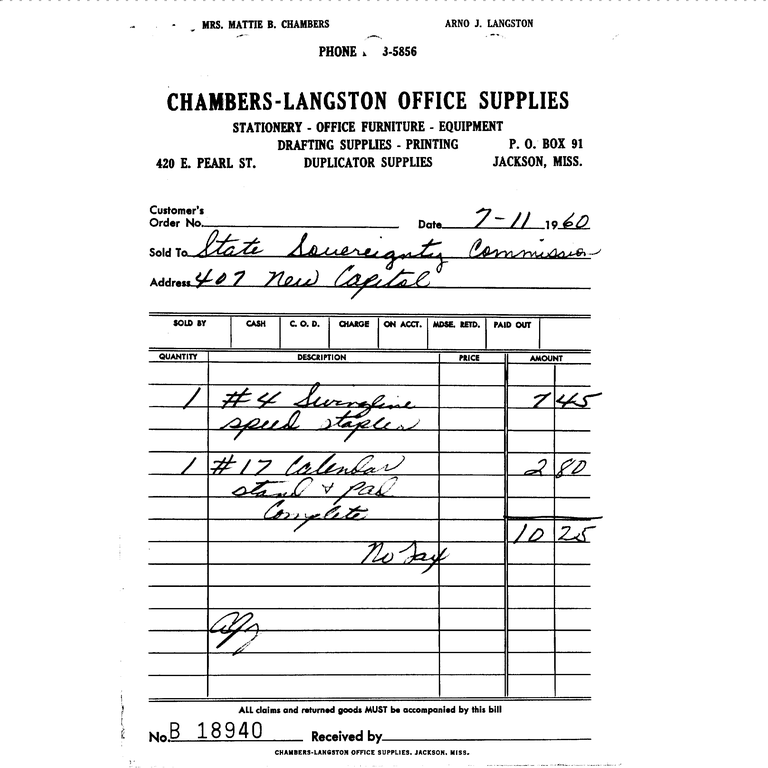 MRS. MATTIE B. CHAMBERS ARNO J. LANGSTON
PHONE 3-5856
CHAMBERS-LANGSTON OFFICE SUPPLIES
STATIONERY - OFFICE FURNITURE - EQUIPMENT
DRAFTING SUPPLIES - PRINTING P. O. BOX 91
420 E. PEARL ST. DUPLICATOR SUPPLIES JACKSON, MISS.
Customer's
Order No. Date 7-11 1960
Sold To State Sovereignty Commission
Address 407 New Capitol
SOLD BY CASH C. O. D. CHARGE ON ACCT. MDSE. RETD. PAID OUT
QUANTITY DESCRIPTION PRICE AMOUNT
1 #4 Swingline 7 45
speed stapler
1 #17 Calendar 2 80
stand & pad
Complete
10 25
No Tax
ALL claims and returned goods MUST be accompanied by this bill
No. B 18940 Received by
CHAMBERS-LANGSTON OFFICE SUPPLIES, JACKSON, MISS.